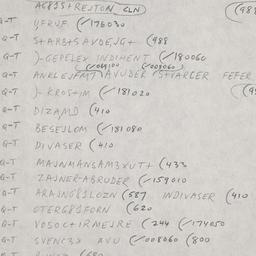 AC81S+RESTON CLN ((988
G-T UFRUF (✓176030
G-T S+AMBTSAVDEJG+ (988
G-T )-GEPELEX INDIMENT (✓180060
(✓009100 (✓008060)
G-T ANKLEJFMT) AVUDER S+VARGER FEFER
G-T )-KROSTIM (✓181020
G-T DIZAMD (410
G-T BESEJLOM (✓181080
G-T DIVASER (410
G-T MAJNMANGAM3XUT+ (433
G-T ZAJNER-ABRUDER (✓159010
G-T ARAJNG81LOZN (587 INDIVASER (410
G-T OTERG81FORN (620
G-T VOSOC+IRMEJRE (244 (✓174050
G-T SVENC3X AVU (✓008060 (800